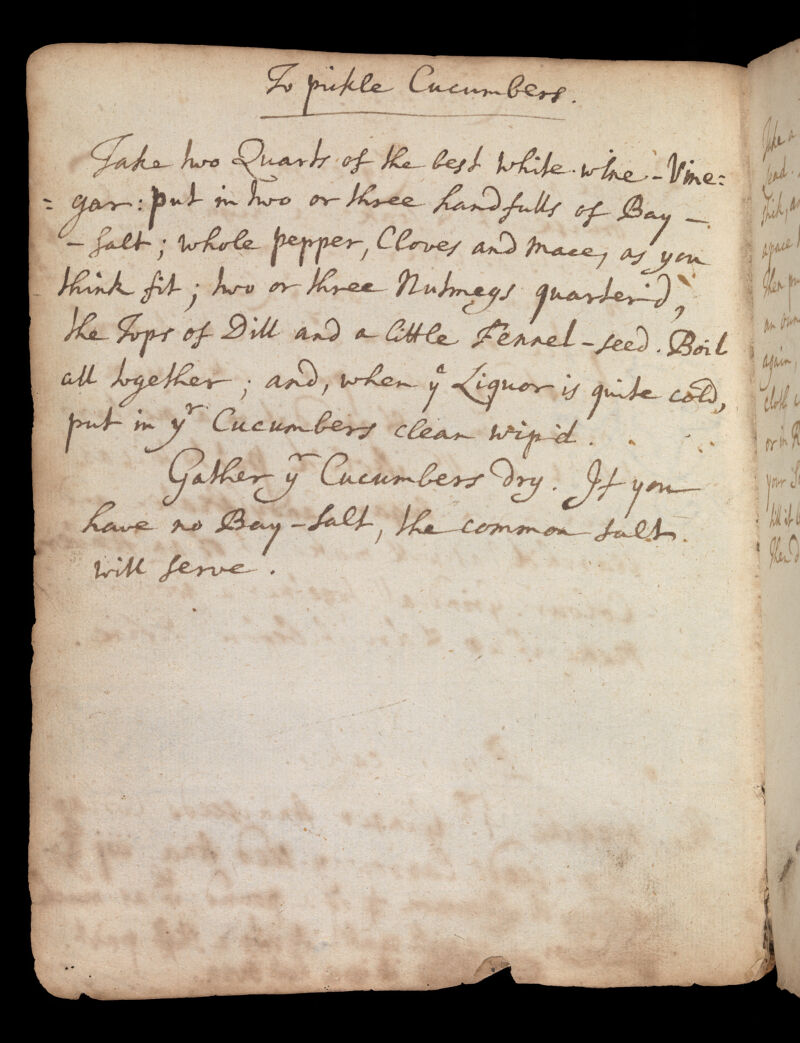 To pickle Cucumbers.
Take two Quarts of the best white-wine-Vine=
=gar: put in two or three handfulls of Bay-
-salt; whole pepper, Cloves and mace, as you
think fit; two or three Nutmegs quarter'd,
the Tops of Dill and a little Fennel-seed. Boil
all together; and, when yᵉ Liquor is quite cold,
put in yʳ Cucumbers clean wip'd.
Gather yʳ Cucumbers dry. If you
have no Bay-salt, the common salt
will serve.
Take a
again,
cloth
or in
your
till it